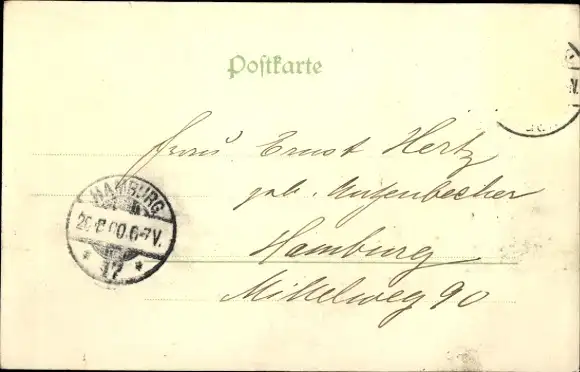 Postkarte
Frau Ernst Hertz
geb.
Hamburg
Mittelweg 90
HAMBURG
00.6-7V.
* 17 *
V.